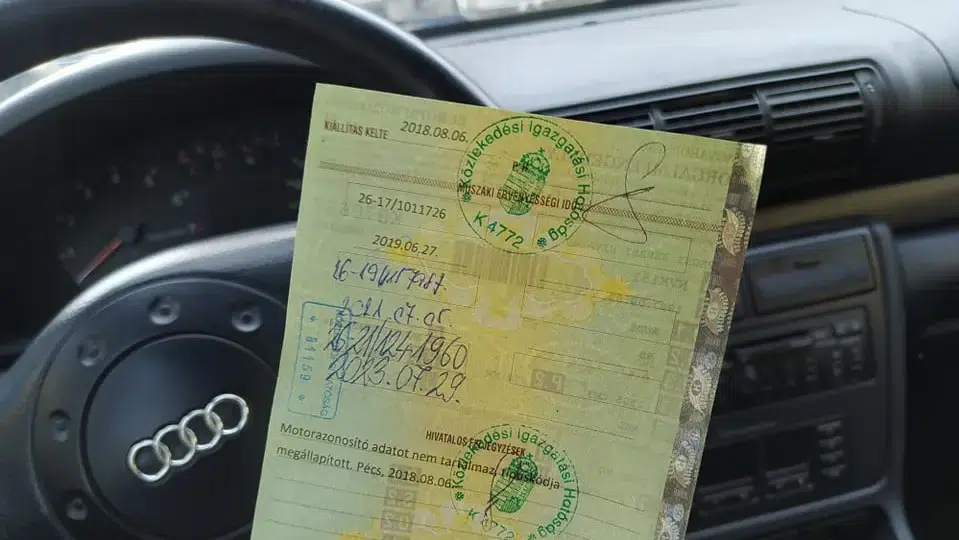 KIÁLLÍTÁS KELTE 2018.08.06.
Közlekedési Igazgatási Hatóság
K 4772
P.H.
MŰSZAKI ÉRVÉNYESSÉGI IDŐ
26-17/1011726
2019.06.27.
2021.07.05.
26-21/1241960
2023.07.29.
81159
HATÓSÁG
HIVATALOS BEJEGYZÉSEK
Motorazonosító adatot nem tartalmaz, típuskódja
megállapított. Pécs, 2018.08.06.
Közlekedési Igazgatási Hatóság
K 4772